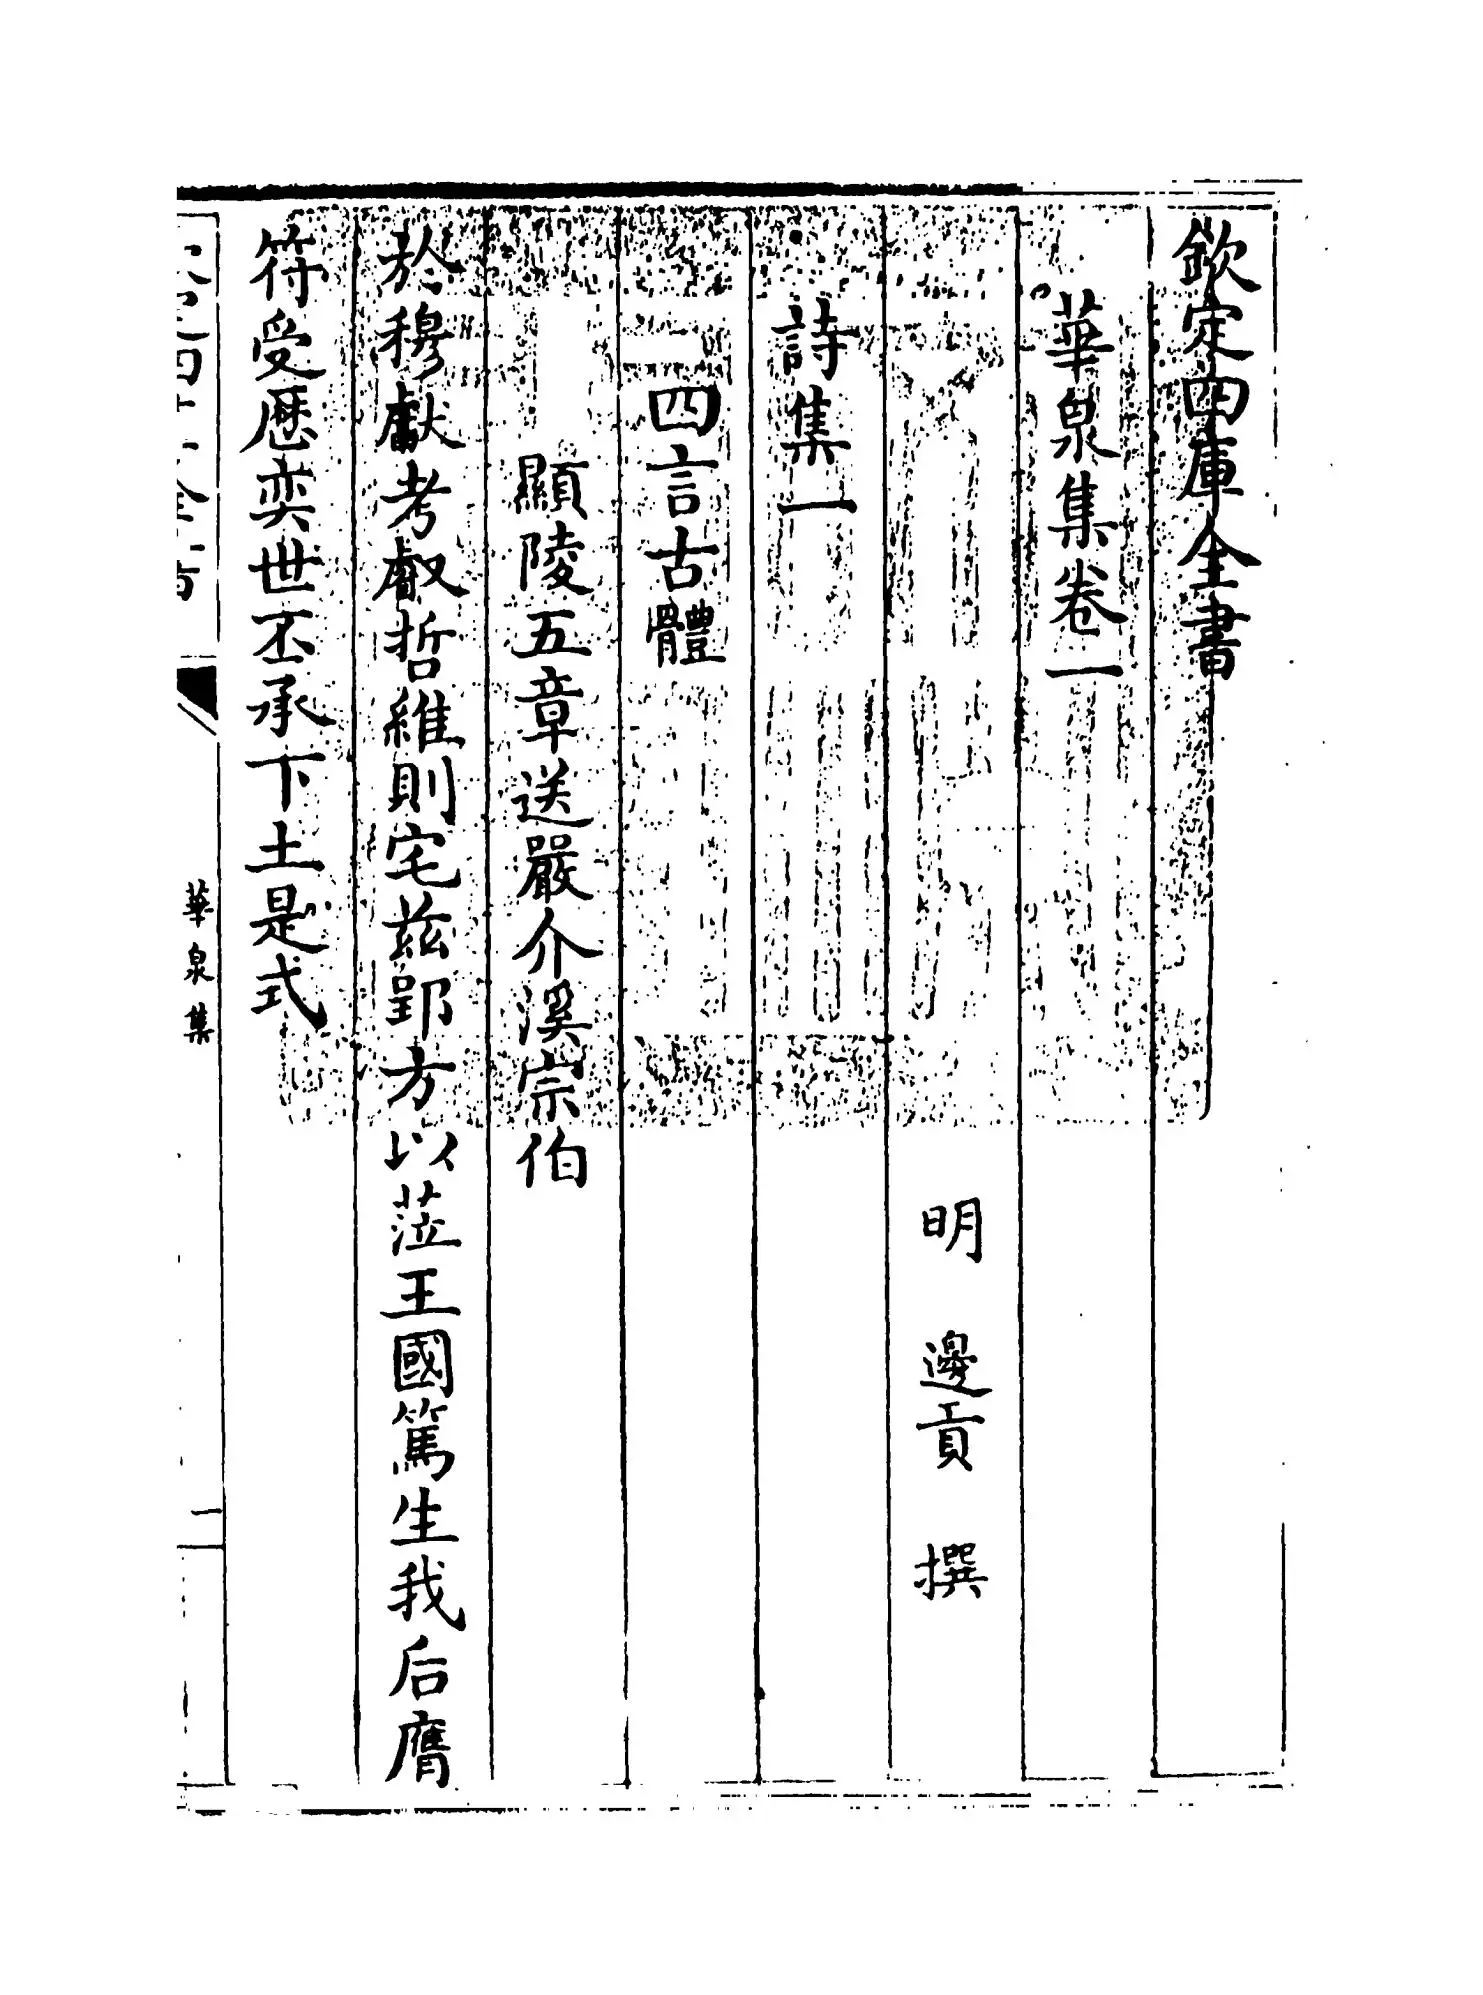 欽定四庫全書
華泉集卷一
明 邊貢 撰
詩集一
四言古體
顯陵五章送嚴介溪宗伯
於穆獻考叡哲維則宅茲郢方以蒞王國篤生我后膺
符受歷奕世丕承下土是式
華泉集
一